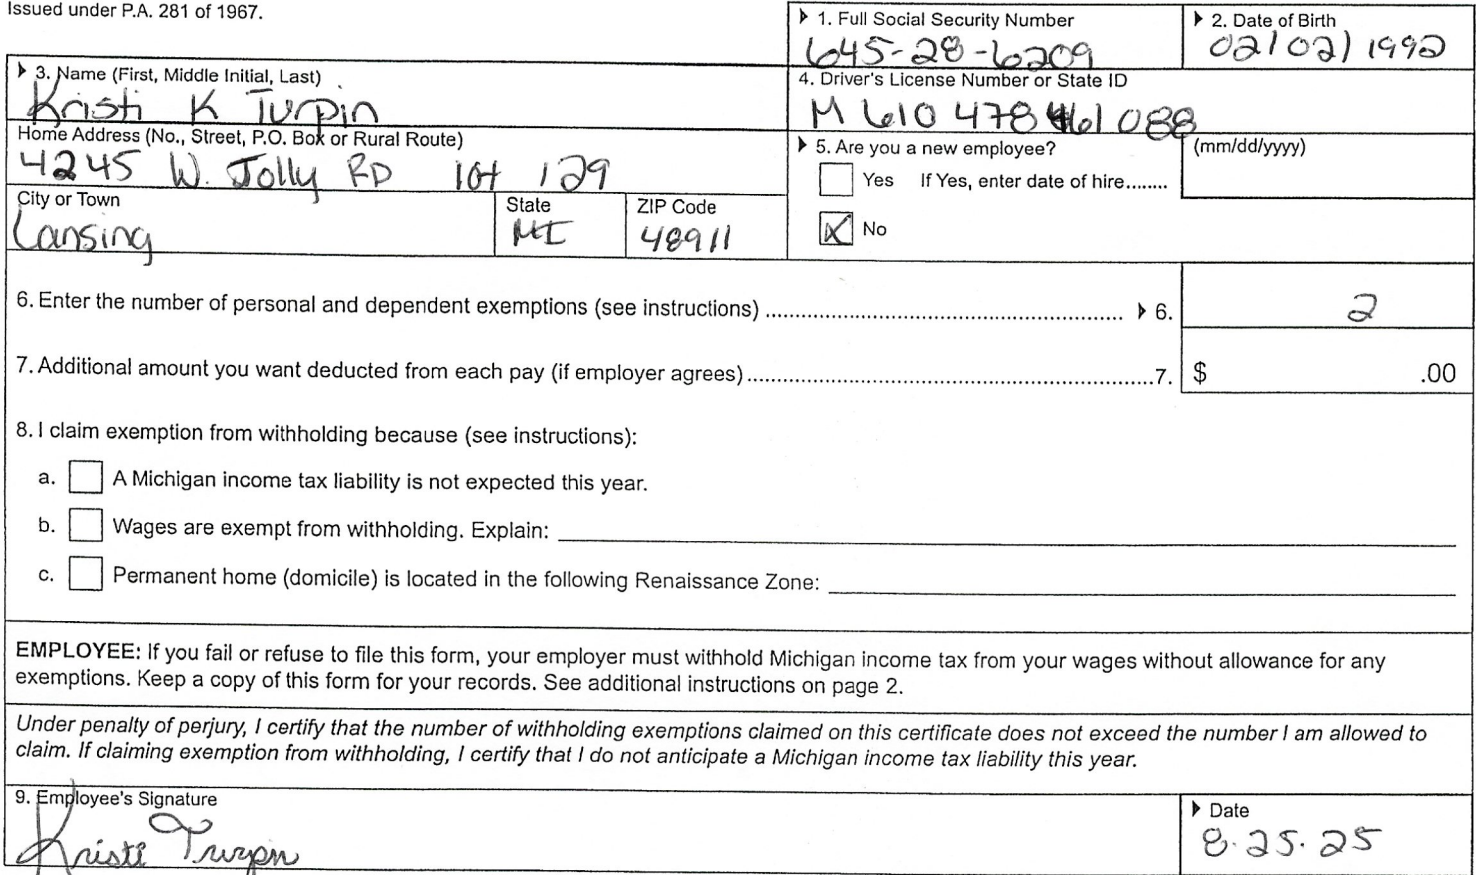 Issued under P.A. 281 of 1967.
1. Full Social Security Number
645-28-6209
2. Date of Birth
02/02/1992
3. Name (First, Middle Initial, Last)
Kristi K Turpin
4. Driver's License Number or State ID
M 610 478 461 088
Home Address (No., Street, P.O. Box or Rural Route)
4245 W. Jolly RD lot 129
5. Are you a new employee?
Yes If Yes, enter date of hire........
(mm/dd/yyyy)
No
City or Town
Lansing
State
MI
ZIP Code
48911
6. Enter the number of personal and dependent exemptions (see instructions) ........ 6. 2
7. Additional amount you want deducted from each pay (if employer agrees) ........ 7. $ .00
8. I claim exemption from withholding because (see instructions):
a. A Michigan income tax liability is not expected this year.
b. Wages are exempt from withholding. Explain:
c. Permanent home (domicile) is located in the following Renaissance Zone:
EMPLOYEE: If you fail or refuse to file this form, your employer must withhold Michigan income tax from your wages without allowance for any
exemptions. Keep a copy of this form for your records. See additional instructions on page 2.
Under penalty of perjury, I certify that the number of withholding exemptions claimed on this certificate does not exceed the number I am allowed to
claim. If claiming exemption from withholding, I certify that I do not anticipate a Michigan income tax liability this year.
9. Employee's Signature
Kristi Turpin
Date
8.25.25